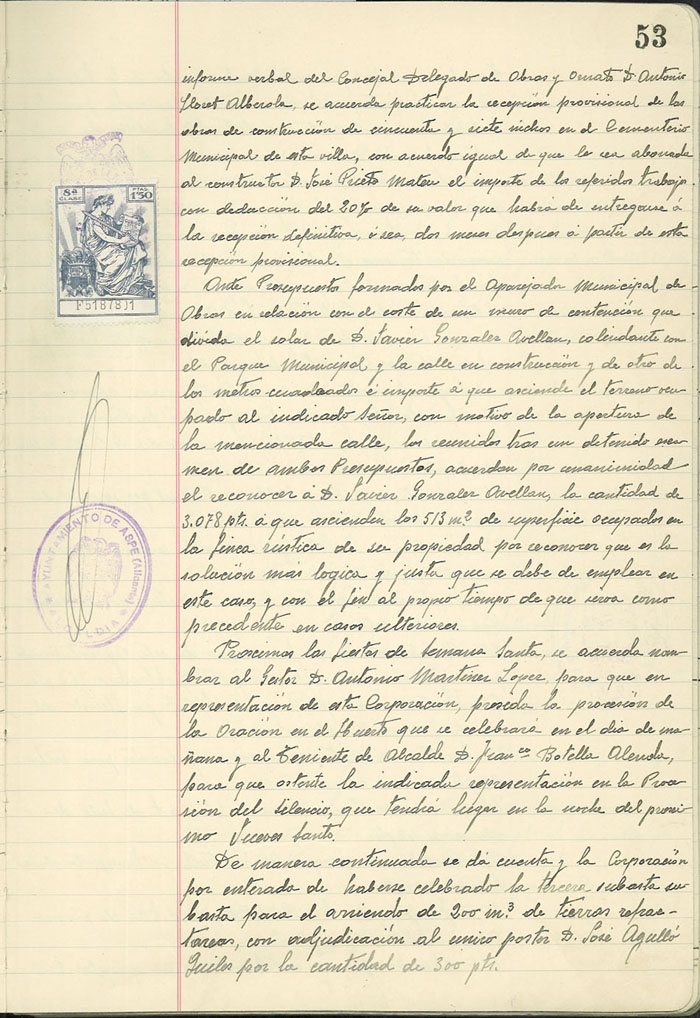 53
informe verbal del Concejal Delegado de Obras y Ornato D. Antonio
Lloret Alberola, se acuerda practicar la recepción provisional de las
obras de construcción de cincuenta y siete nichos en el Cementerio
Municipal de esta villa, con acuerdo igual de que le sea abonada
al constructor D. José Prieto Mateu el importe de los referidos trabajos
con deducción del 20% de su valor que habrá de entregarse á
la recepción definitiva, ó sea, dos meses despues á partir de esta
recepción provisional.
Ante Presupuestos formados por el Aparejador Municipal de
Obras en relación con el coste de un muro de contención que
divida el solar de D. Javier Gonzalez Avellan, colindante con
el Parque Municipal y la calle en construcción y de otro de
los metros cuadrados é importe á que asciende el terreno ocu-
pado al indicado Señor, con motivo de la apertura de
la mencionada calle, los reunidos tras un detenido exa-
men de ambos Presupuestos, acuerdan por unanimidad
el reconocer á D. Javier Gonzalez Avellan, la cantidad de
3.078 pts. á que ascienden los 513 m² de superficie ocupados en
la finca rústica de su propiedad por reconocer que es la
solución más logica y justa que se debe de emplear en
este caso, y con el fin al propio tiempo de que sirva como
precedente en casos ulteriores.
Proximas las fiestas de Semana Santa, se acuerda nom-
brar al Gestor D. Antonio Martinez Lopez, para que en
representación de esta Corporación, presida la procesión de
la Oración en el Huerto que se celebrará en el dia de ma-
ñana y al Teniente de Alcalde D. Franco Botella
para que ostente la indicada representación en la Proce-
sión del Silencio, que tendrá lugar en la noche del proxi-
mo Jueves Santo.
De manera continuada se dá cuenta y la Corporación
por enterada de haberse celebrado la tercera subasta su-
basta para el arriendo de 200 m³ de tierras refrac-
tareas, con adjudicación al unico postor D. José Agulló
por la cantidad de 300 pts.
8ª CLASE
PTAS. 1'50
F5187811
AYUNTAMIENTO DE ASPE (Alicante)
ALCALDIA